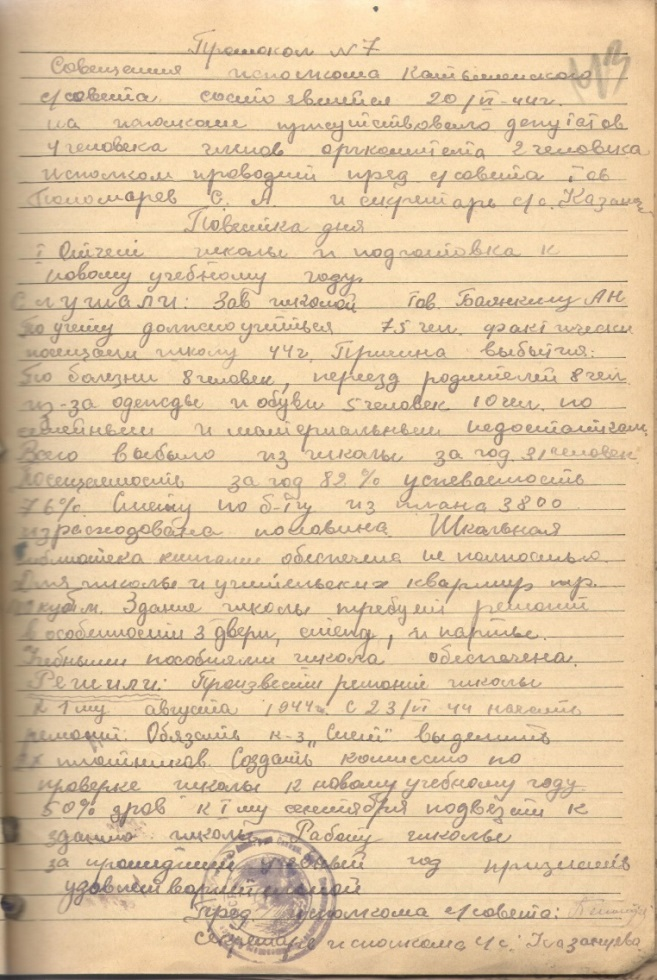 Протокол N 7
Совещания исполкома Катымского
с/совета состоявшегося 20/VI-44 г.
на исполкоме присутствовало депутатов
4 человека членов оргкомитета 2 человека
исполком проводит пред с/совета Тов
Пономарев С. А. и секретарь с/с. Казанц.
Повестка дня
I Отчет школы и подготовка к
новому учебному году.
Слушали: Зав школой Тов. Баянкину АН
По учету должно учиться 75 чел. фактически
посещает школу 44 г. Причина выбытия:
По болезни 8 человек, переезд родителей 8 чел
из-за одежды и обуви 5 человек 10 чел. по
семейным и материальным недостаткам.
Всего выбыло из школы за год 31 человек
Посещаемость за год 82 % успеваемость
76 %. Смету по б-ту из плана 3800
израсходована половина. Школьная
библиотека книгами обеспечена не полностью.
Для школы и учительских квартир тр.
куб/м. Здание школы требует ремонт
в особенности 3 двери, стенд, и парты.
Учебными пособиями школа обеспечена.
Решили: Произвести ремонт школы
к 1 му августа 1944 г. С 23/VI 44 начать
ремонт. Обязать к-з "Свет" выделить
2х плотников. Создать комиссию по
проверке школы к новому учебному году
50% дров к I му сентября подвезти к
зданию школы. Работу школы
за прошедший учебный год признать
удовлетворительной
Пред исполкома с/совета:
Секретарь исполкома с/с: Казанцева